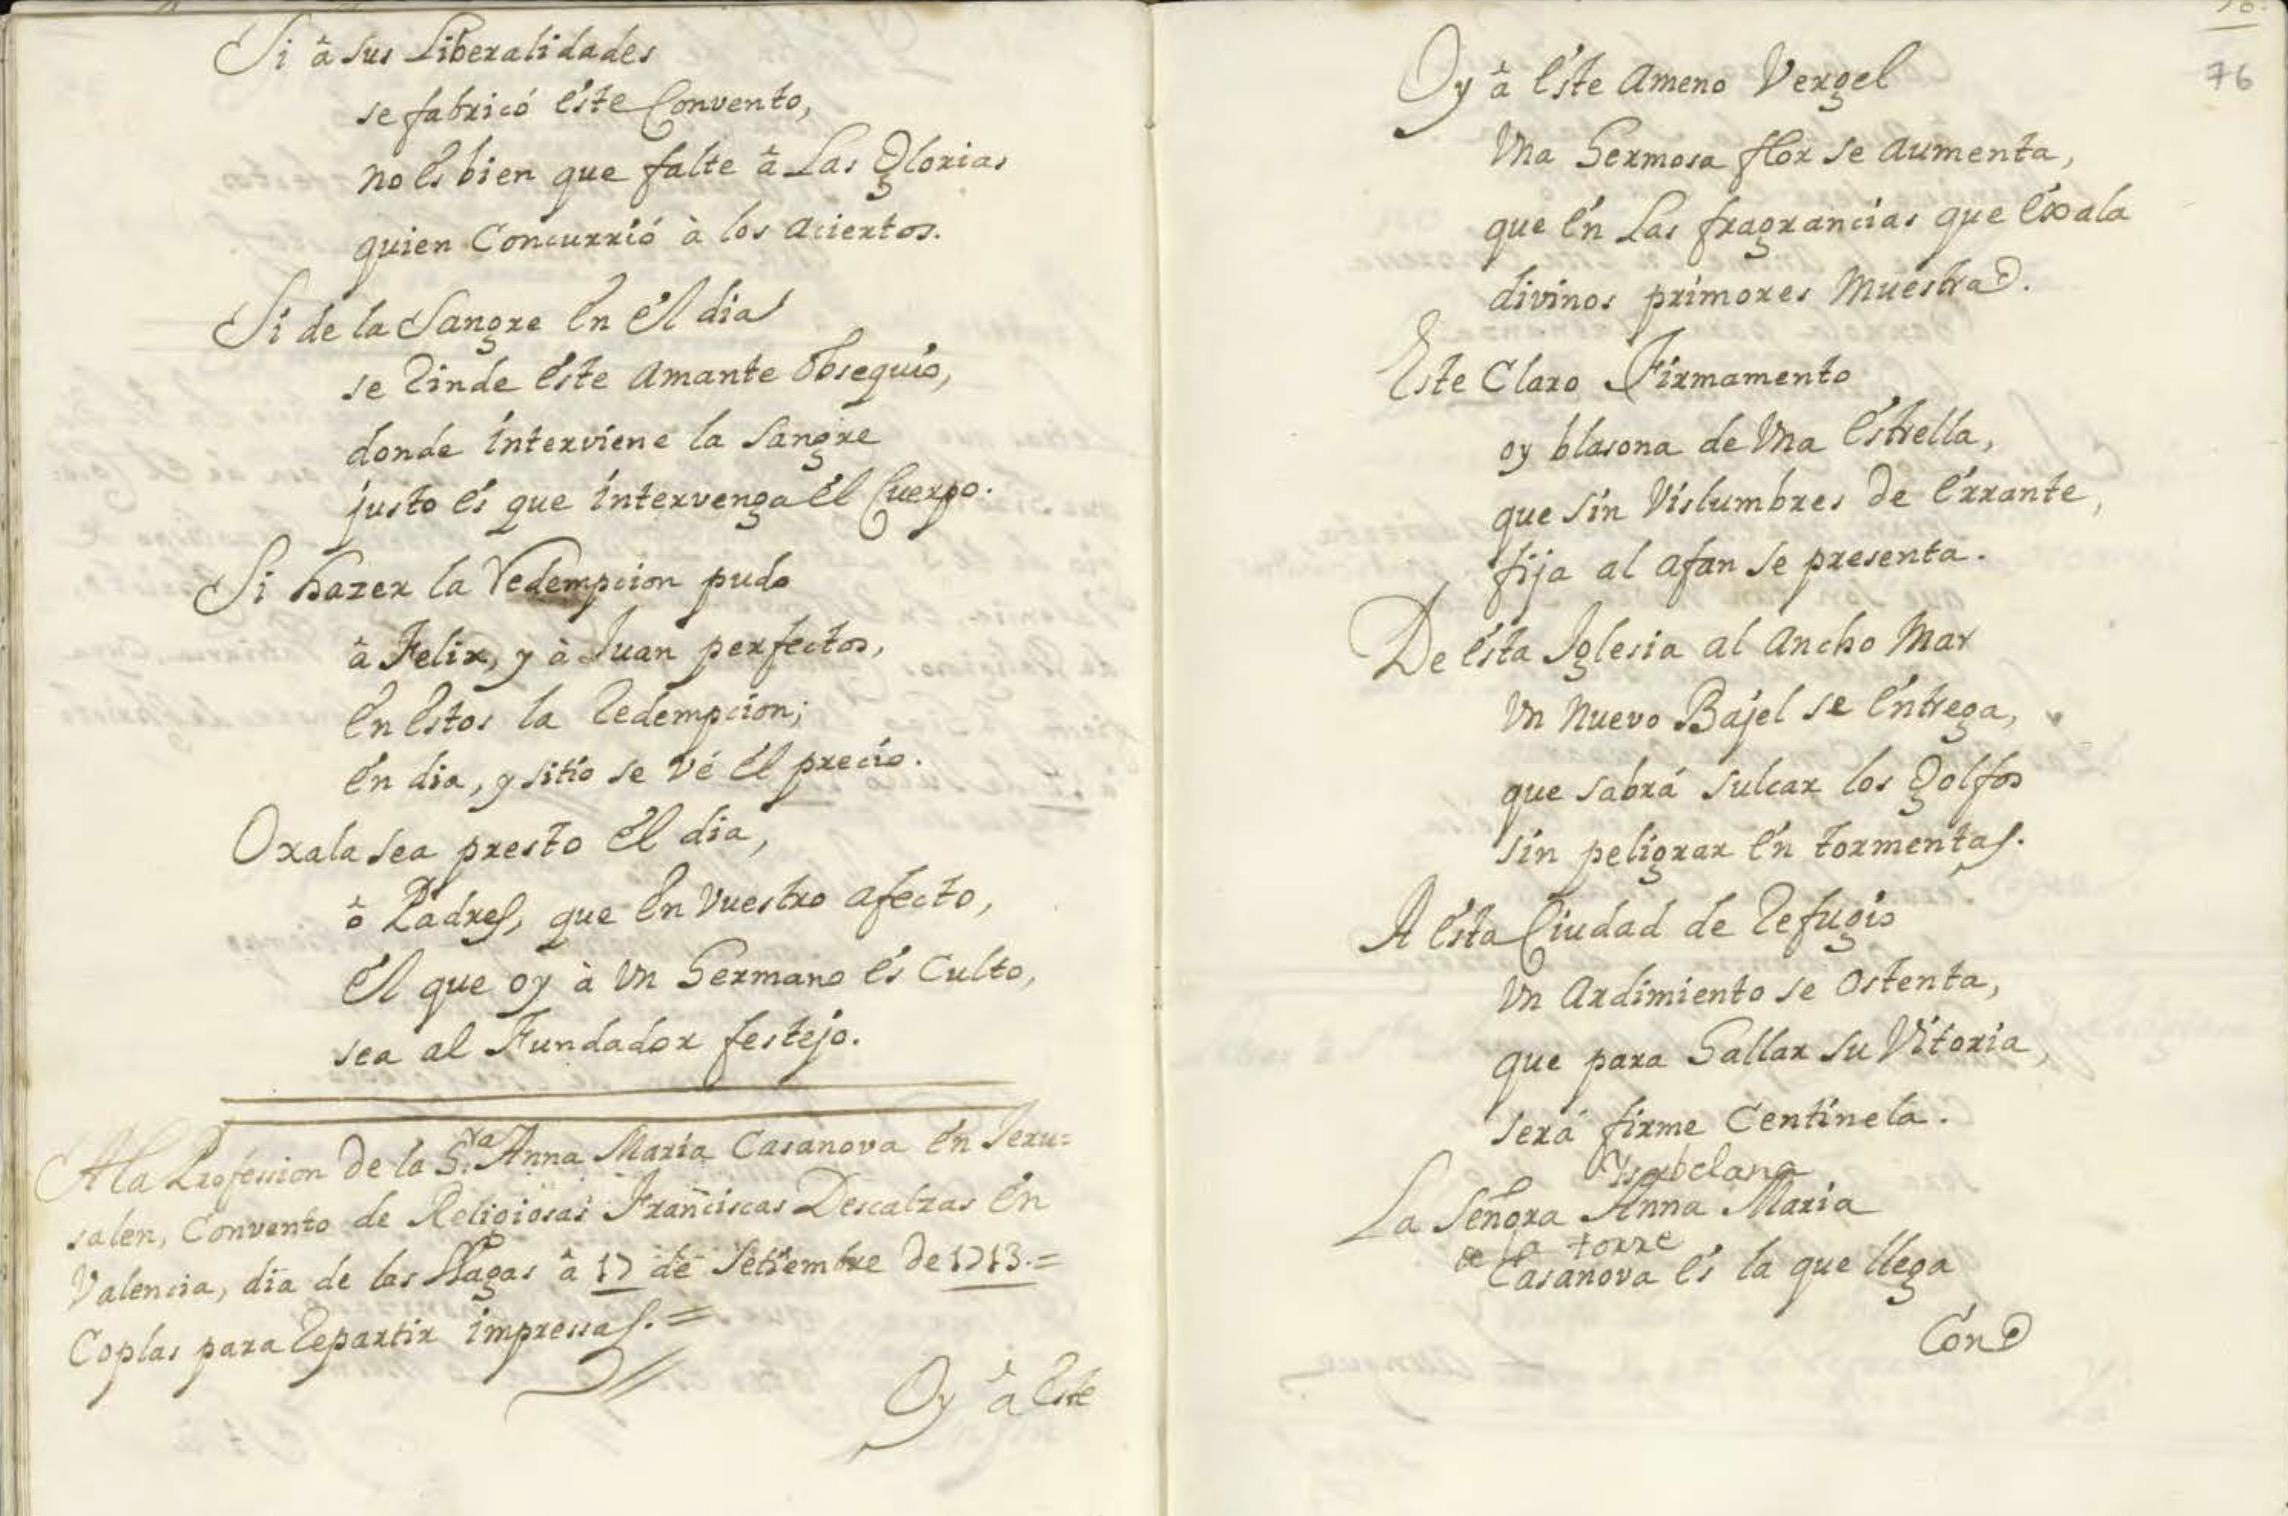 Si â sus Liberalidades
se fabricó éste Convento,
no és bien que falte â Las Glorias
quien Concurrió à los aciertos.
Si de la Sangre én él dia
se rinde éste amante obsequio,
donde interviene la Sangre
justo és que intervenga él Cuerpo.
Si hazer la redempcion pudo
â Felix, y à Juan perfectos,
én éstos la redempcion;
én dia, y sitio se vé él precio.
Oxala sea presto él dia,
ô Padres, que én vuestro afecto,
él que oy à Vn Hermano és Culto,
sea al Fundador festejo.
A la Profession de la S.ra Anna Maria Casanova én Jeru=
salen, Convento de Religiosas Franciscas Descalzas én
Valencia, dia de las Llagas â 17 de Setiembre de 1713.=
Coplas para repartir impressas.=
Oy â éste
76
Oy â éste ameno Vergel
Vna Hermosa flor se aumenta,
que én Las fragrancias que éxala
divinos primores muestra.
Este Claro Firmamento
oy blasona de Vna éstrella,
que sin Vislumbres de érrante,
fija al afan se presenta.
De ésta Iglesia al ancho Mar
Vn nuevo Bajel se éntrega,
que sabrá sulcar los golfos
sin peligrar én tormentas.
A ésta Ciudad de refugio
Vn Ardimiento se ostenta,
que para Hallar su Vitoria,
será firme Centinela.
Ysabelana
La Señora Anna Maria
de la torre
Casanova és la que llega
Con